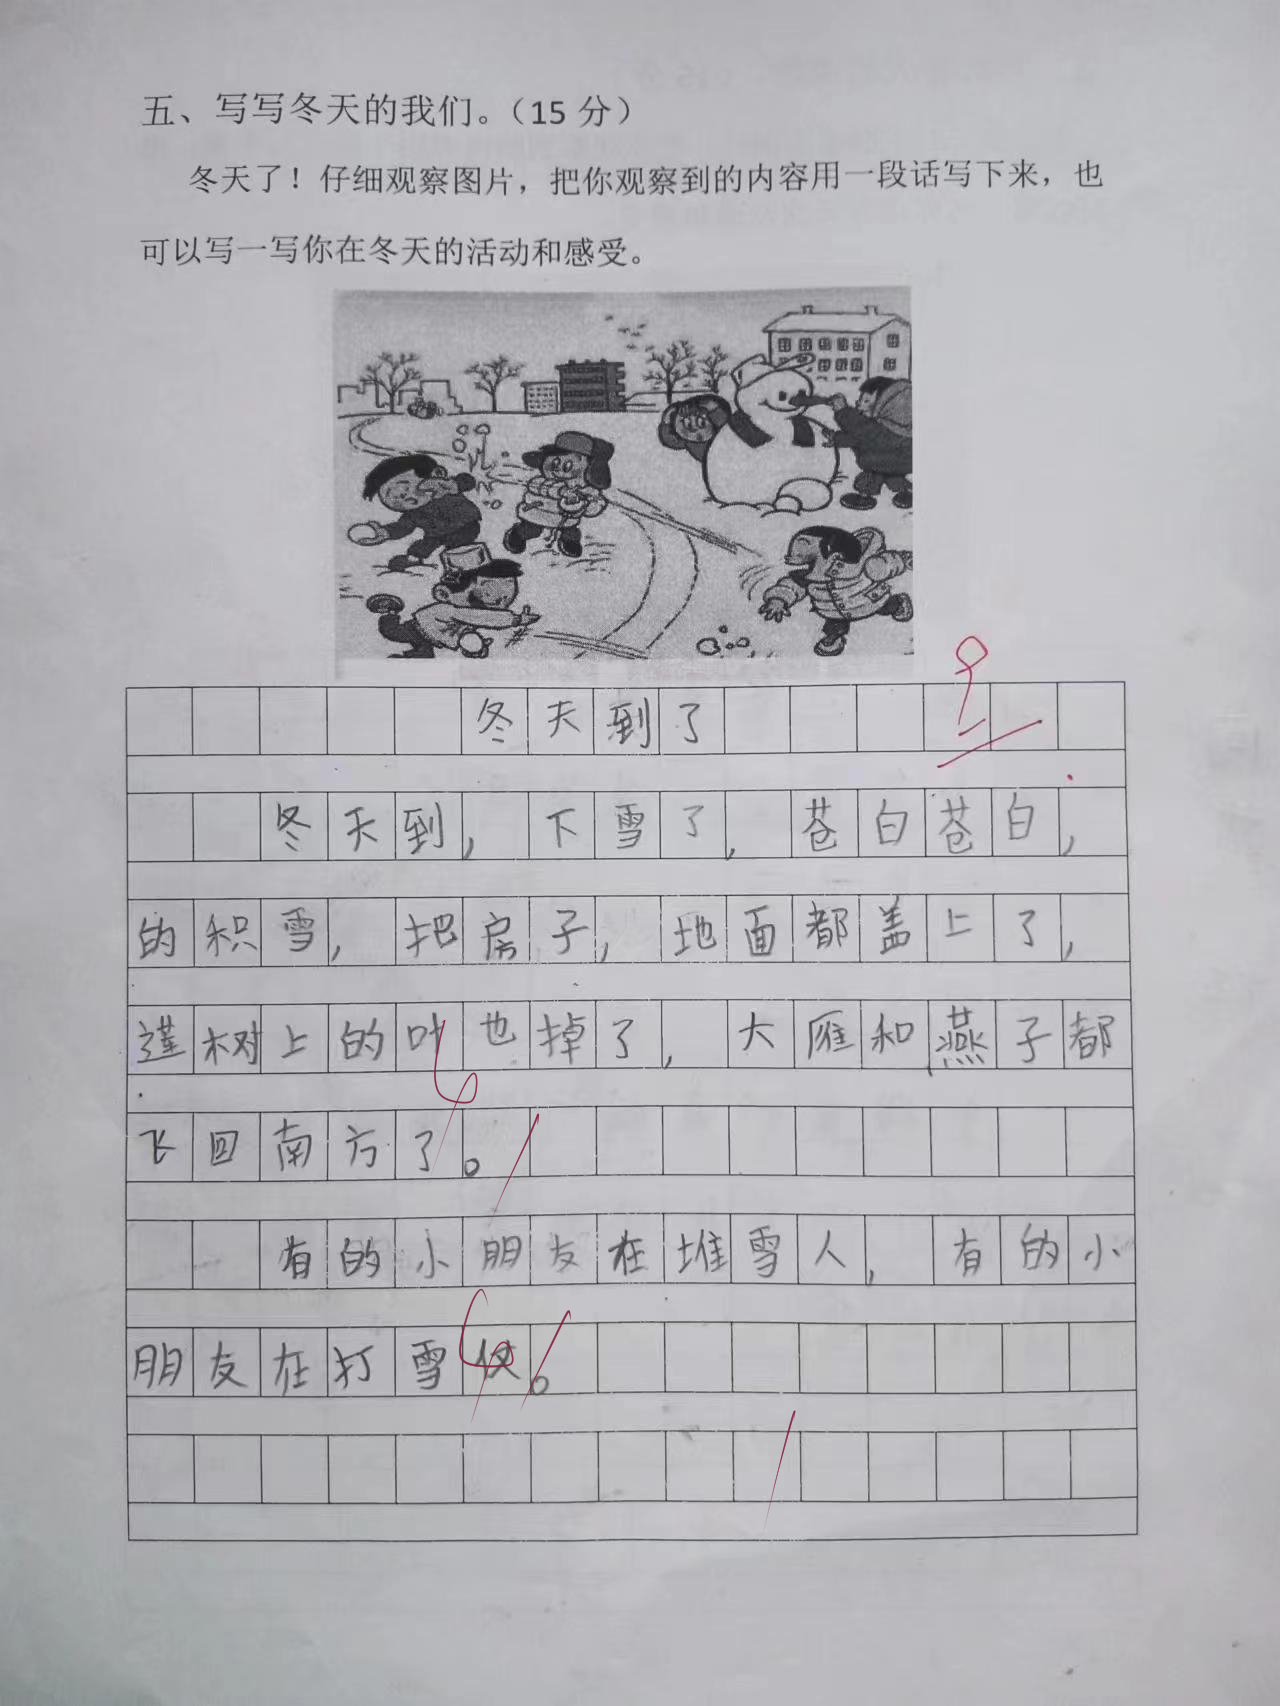 五、写写冬天的我们。（15 分）
冬天了！仔细观察图片，把你观察到的内容用一段话写下来，也
可以写一写你在冬天的活动和感受。
冬天到了
冬天到，下雪了，苍白苍白，
的积雪，把房子，地面都盖上了，
树上的叶也掉了，大雁和燕子都
飞回南方了。
有的小朋友在堆雪人，有的小
朋友在打雪仗。